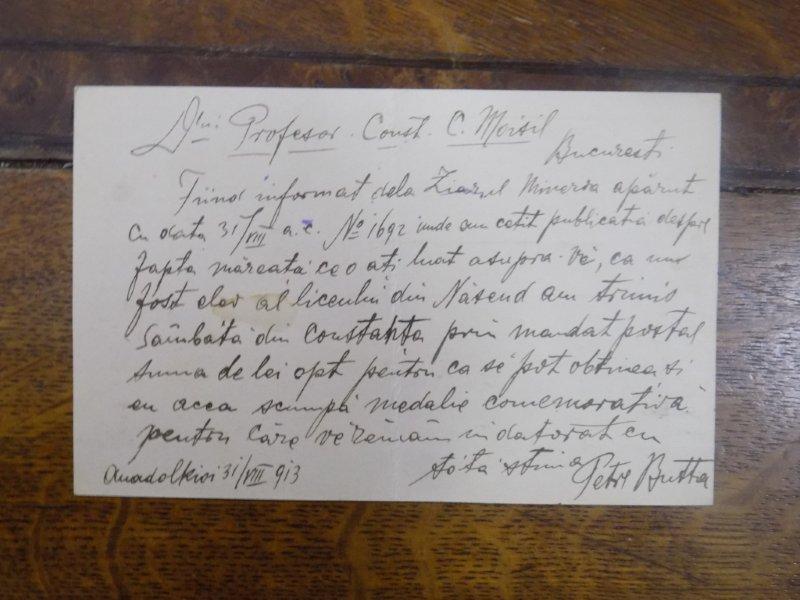 Dlui Profesor Const. C. Moisil
Bucuresti
Fiind informat dela Ziarul Minerva apărut
cu data 31/VIII a.c. No 1692 unde am cetit publicatia despre
fapta măreată ce o ati luat asupra-Vĕ, ca un
fost elev al liceului din Năsĕud am trimis
Sâmbătă din Constanta prin mandat postal
suma de lei opt pentru ca sĕ pot obtinea si
eu acea scumpă medalie comemorativă
pentru care vĕ rĕmân indatorat cu
tótă stima Petre Butta
Anadolkioi 31/VIII 913